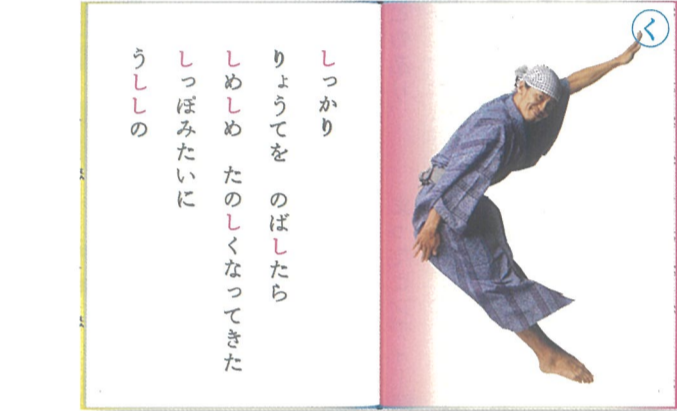 しっかり
りょうてを　のばしたら
しめしめ　たのしくなってきた
しっぽみたいに
うししの
く